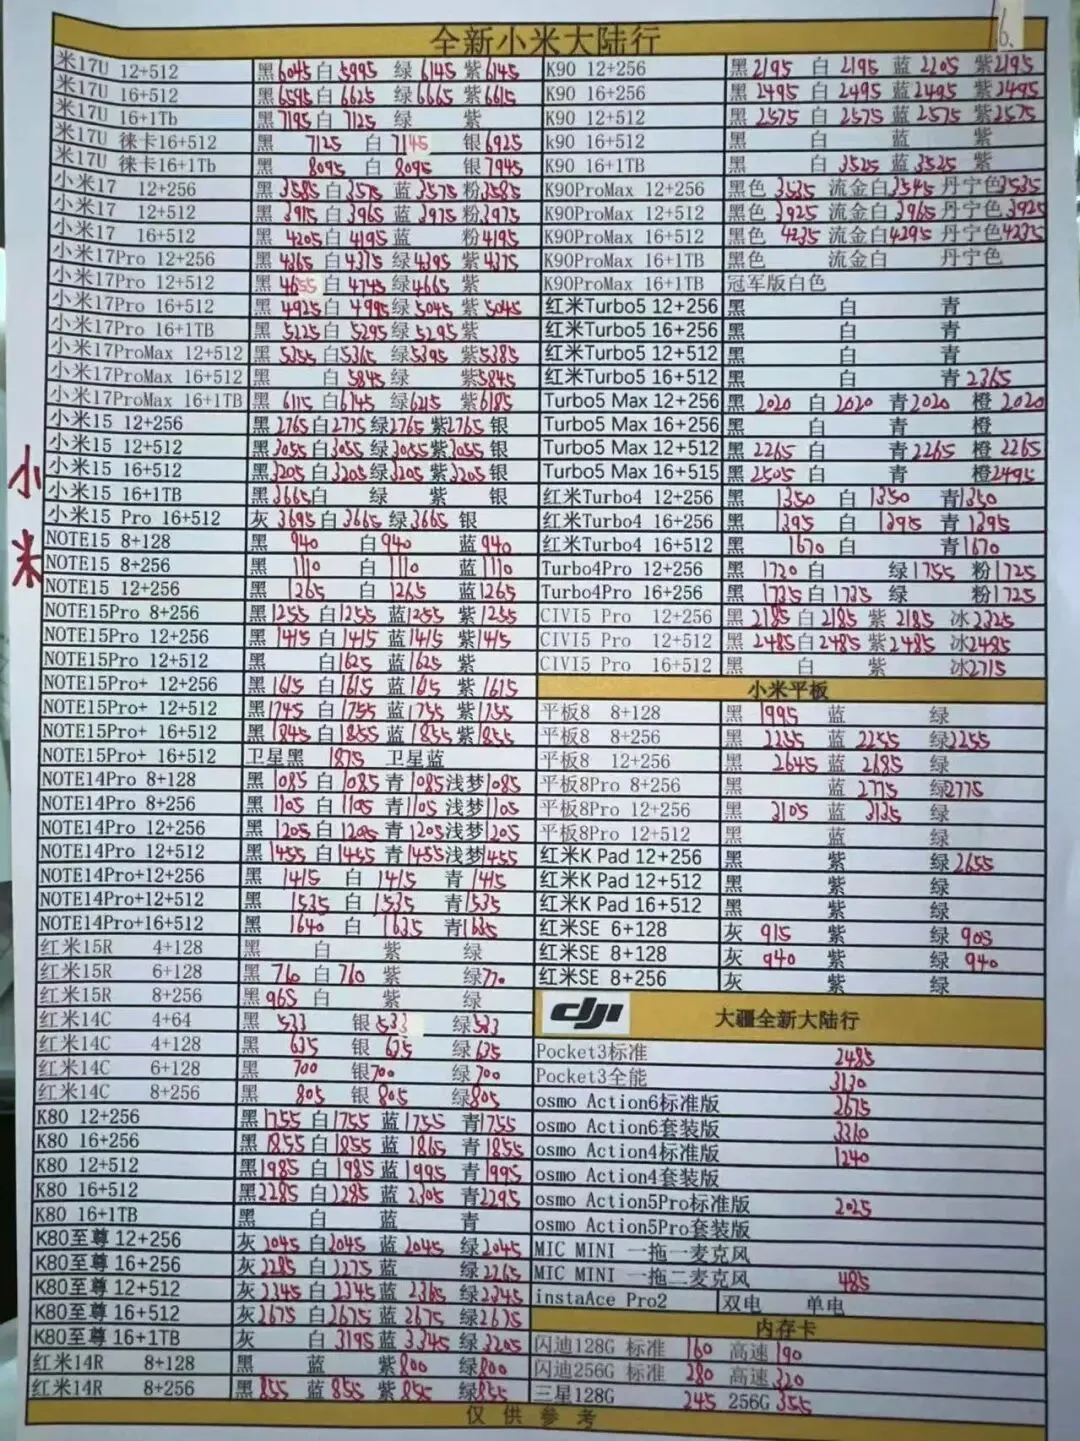 6.
全新小米大陆行
小米
米17U 12+512 黑6045 白5995 绿6145 紫6145
米17U 16+512 黑6595 白6625 绿6665 紫6615
米17U 16+1Tb 黑7195 白7125 绿 紫
米17U 徕卡16+512 黑 7125 白7145 银6925
米17U 徕卡16+1Tb 黑 8095 白8095 银7945
小米17 12+256 黑3585 白3575 蓝3575 粉3585
小米17 12+512 黑3915 白3965 蓝3975 粉3975
小米17 16+512 黑4205 白4195 蓝 粉4195
小米17Pro 12+256 黑4365 白4375 绿4395 紫4375
小米17Pro 12+512 黑4655 白4745 绿4665 紫
小米17Pro 16+512 黑4925 白4995 绿5045 紫5045
小米17Pro 16+1TB 黑5225 白5295 绿5295 紫
小米17ProMax 12+512 黑5355 白5365 绿5395 紫5385
小米17ProMax 16+512 黑 白5845 绿 紫5845
小米17ProMax 16+1TB 黑6115 白6145 绿6215 紫6185
小米15 12+256 黑2765 白2775 绿2765 紫2765 银
小米15 12+512 黑3055 白3055 绿3055 紫3055 银
小米15 16+512 黑3205 白3205 绿3205 紫3205 银
小米15 16+1TB 黑3665 白 绿 紫 银
小米15 Pro 16+512 灰3695 白3665 绿3665 银
NOTE15 8+128 黑 940 白940 蓝940
NOTE15 8+256 黑 1110 白1110 蓝1110
NOTE15 12+256 黑 1265 白1265 蓝1265
NOTE15Pro 8+256 黑1255 白1255 蓝1255 紫1255
NOTE15Pro 12+256 黑1415 白1415 蓝1415 紫1415
NOTE15Pro 12+512 黑 白1625 蓝1625 紫
NOTE15Pro+ 12+256 黑1615 白1615 蓝1615 紫1615
NOTE15Pro+ 12+512 黑1745 白1755 蓝1755 紫1755
NOTE15Pro+ 16+512 黑1845 白1855 蓝1855 紫1855
NOTE15Pro+ 16+512 卫星黑 1875 卫星蓝
NOTE14Pro 8+128 黑1085 白1085 青1085 浅梦1085
NOTE14Pro 8+256 黑1105 白1105 青1105 浅梦1105
NOTE14Pro 12+256 黑1205 白1205 青1205 浅梦1205
NOTE14Pro 12+512 黑1455 白1455 青1455 浅梦1455
NOTE14Pro+12+256 黑 1415 白 1415 青1415
NOTE14Pro+12+512 黑 1535 白 1535 青1535
NOTE14Pro+16+512 黑 1640 白 1635 青1635
红米15R 4+128 黑 白 紫 绿
红米15R 6+128 黑760 白760 紫 绿770
红米15R 8+256 黑965 白 紫 绿
红米14C 4+64 黑 533 银533 绿533
红米14C 4+128 黑 635 银 635 绿635
红米14C 6+128 黑 700 银700 绿700
红米14C 8+256 黑 805 银 805 绿805
K80 12+256 黑1755 白1755 蓝1755 青1755
K80 16+256 黑1855 白1855 蓝1865 青1855
K80 12+512 黑1985 白1985 蓝1995 青1995
K80 16+512 黑2285 白2285 蓝2305 青2295
K80 16+1TB 黑 白 蓝 青
K80至尊 12+256 灰2045 白2045 蓝2045 绿2045
K80至尊 16+256 灰2285 白2275 蓝 绿2265
K80至尊 12+512 灰2345 白2345 蓝2365 绿2345
K80至尊 16+512 灰2675 白2675 蓝2675 绿2675
K80至尊 16+1TB 灰 白3195 蓝3345 绿3205
红米14R 8+128 黑 蓝 紫800 绿800
红米14R 8+256 黑855 蓝855 紫855 绿855
K90 12+256 黑2195 白2195 蓝2205 紫2195
K90 16+256 黑2495 白2495 蓝2495 紫2495
K90 12+512 黑2575 白2575 蓝2575 紫2575
k90 16+512 黑 白 蓝 紫
K90 16+1TB 黑 白3525 蓝3525 紫
K90ProMax 12+256 黑色3535 流金白3545 丹宁色3535
K90ProMax 12+512 黑色3925 流金白3965 丹宁色3925
K90ProMax 16+512 黑色4235 流金白4295 丹宁色4235
K90ProMax 16+1TB 黑色 流金白 丹宁色
K90ProMax 16+1TB 冠军版白色
红米Turbo5 12+256 黑 白 青
红米Turbo5 16+256 黑 白 青
红米Turbo5 12+512 黑 白 青
红米Turbo5 16+512 黑 白 青2365
Turbo5 Max 12+256 黑2020 白2020 青2020 橙2020
Turbo5 Max 16+256 黑 白 青 橙
Turbo5 Max 12+512 黑2265 白 青2265 橙2265
Turbo5 Max 16+515 黑2505 白 青 橙2495
红米Turbo4 12+256 黑 1350 白1350 青1350
红米Turbo4 16+256 黑 1395 白1395 青1395
红米Turbo4 16+512 黑 1670 白 青1670
Turbo4Pro 12+256 黑1720 白 绿1755 粉1725
Turbo4Pro 16+256 黑1735 白1735 绿 粉1725
CIVI5 Pro 12+256 黑2185 白2185 紫2185 冰2325
CIVI5 Pro 12+512 黑2485 白2485 紫2485 冰2485
CIVI5 Pro 16+512 黑 白 紫 冰2715
小米平板
平板8 8+128 黑 1995 蓝 绿
平板8 8+256 黑 2255 蓝2255 绿2255
平板8 12+256 黑 2645 蓝2685 绿
平板8Pro 8+256 黑 蓝2775 绿2775
平板8Pro 12+256 黑 3105 蓝3135 绿
平板8Pro 12+512 黑 蓝 绿
红米K Pad 12+256 黑 紫 绿2655
红米K Pad 12+512 黑 紫 绿
红米K Pad 16+512 黑 紫 绿
红米SE 6+128 灰 915 紫 绿905
红米SE 8+128 灰 940 紫 绿940
红米SE 8+256 灰 紫 绿
dji 大疆全新大陆行
Pocket3标准 2485
Pocket3全能 3130
osmo Action6标准版 2675
osmo Action6套装版 3310
osmo Action4标准版 1240
osmo Action4套装版
osmo Action5Pro标准版 2025
osmo Action5Pro套装版
MIC MINI 一拖一麦克风
MIC MINI 一拖二麦克风 485
instaAce Pro2 双电 单电
内存卡
闪迪128G 标准 160 高速190
闪迪256G 标准 280 高速320
三星128G 245 256G 355
仅供参考